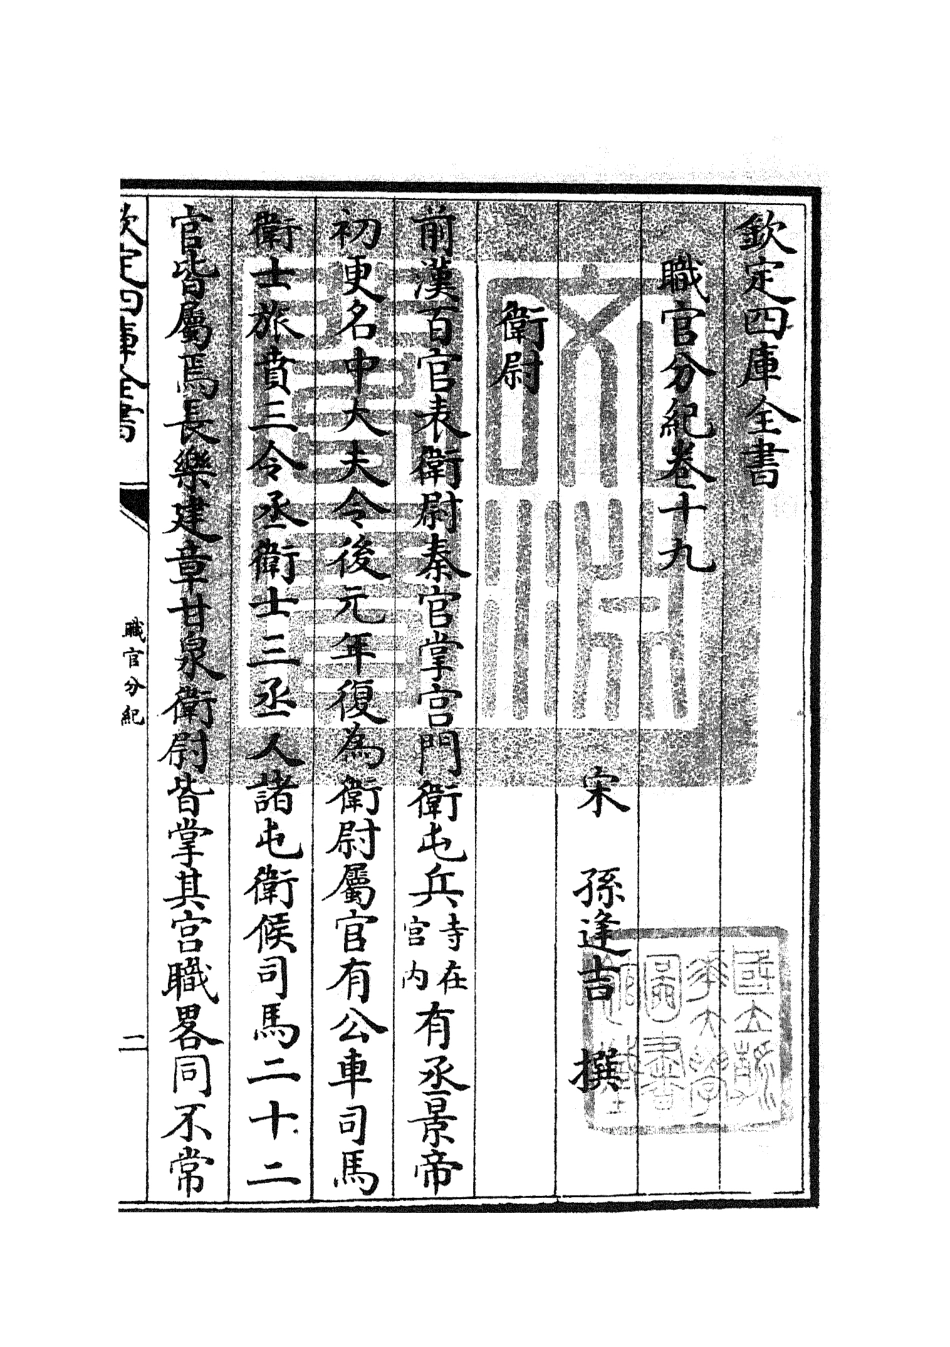 欽定四庫全書
職官分紀卷十九
宋 孫逢吉 撰
衛尉
前漢百官表衛尉秦官掌宫門衛屯兵寺在宫内有丞景帝
初更名中大夫令後元年復為衛尉屬官有公車司馬
衛士旅賁三令丞衛士三丞人諸屯衛候司馬二十二
官皆屬焉長樂建章甘泉衛尉皆掌其宫職畧同不常
欽定四庫全書
職官分紀
二
國立清華大學圖書館藏